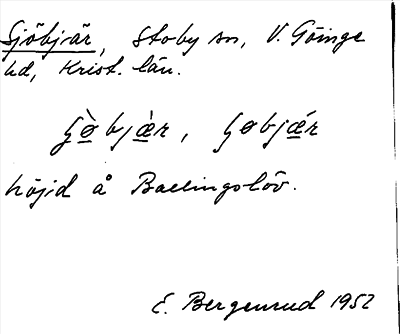 Sjöbjär, Stoby sn, V. Göinge
hd, Krist. län.
ʃö̀bjæ̀r, ʃöbjǽr
höjd å Ballingslöv.
E. Bergenrud 1952